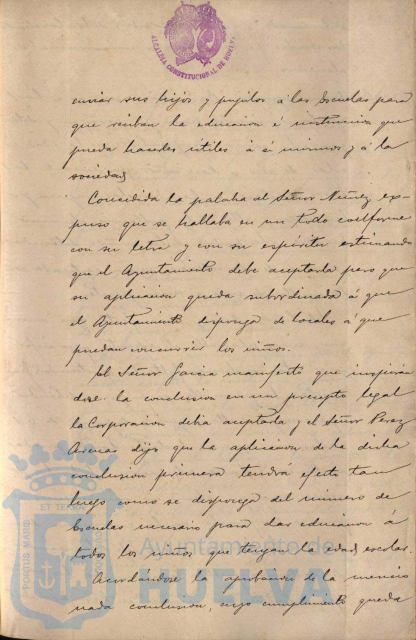 ALCALDIA CONSTITUCIONAL DE HUELVA
enviar sus hijos y pupilos a las Escuelas para
que reciban la educacion é instruccion que
pueda hacerles utiles á si mismos y á la
sociedad
Concedida la palabra al Señor Nuñez ex-
puso que se hallaba en un todo conforme
con su letra y con su espiritu estimando
que el Ayuntamiento debe aceptarla pero que
su aplicacion queda subordinada á que
el Ayuntamiento disponga de locales á que
puedan concurrir los niños.
El Señor Garcia manifestó que inspiran
dose la conclusion en un precepto legal
la Corporacion debia aceptarla y el Señor Perez
Arenas dijo que la aplicacion de la dicha
conclusion primera tendrá efecto tan
luego como se disponga del numero de
Escuelas necesario para dar educacion á
todos los niños que tengan la edad escolar.
Acordandose la aprobacion de la mencio
nada conclusion, cuyo cumplimiento queda
PORTUS MARIS ET TERRAE
Ayuntamiento de
HUELVA